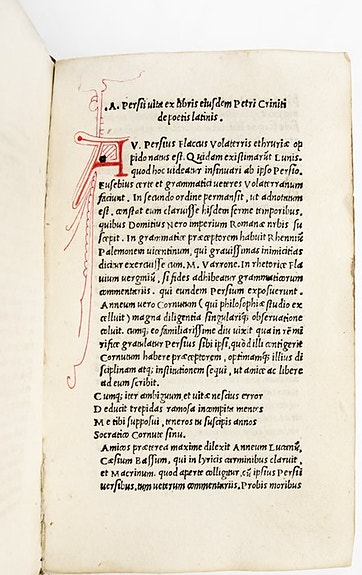 .A. Persii uitæ ex libris eiusdem Petri Criniti
de poetis latinis.
AV. Persius Flaccus Volaterris ethruriæ op
pido natus est. Quidam existimarūt Lunis.
quod hoc uideatur insinuari ab ipso Persio.
Eusebius certe et grammatici ueteres Volaterranum
faciunt. In secundo ordine permansit, ut adnotatum
est, constat eum claruisse hisdem ferme temporibus.
quibus Domitius Nero imperium Romanæ urbis su
scepit. In grammatica præceptorem habuit Rhenniū
Palemonem uicentinum, qui grauissimas inimicitias
dicitur exercuisse cum. M. Varrone. In rhetorica Fla
uium uerginiū, si fides adhibeatur grammaticorum
commentariis. qui eundem Persium exposuerunt.
Anneum uero Cornutum (qui philosophiæ studio ex
celluit) magna diligentia singulariq; obseruatione
coluit. cumq; eo familiarissime diu uixit qua in re mi
rifice gratulatur Persius sibi ipsi, quod illi contigerit
Cornutum habere præceptorem, optimamq; illius di
sciplinam atq; institutionem sequi, ut amice ac libere
ad eum scribit.
Cumq; iter ambiguum et uitæ nescius error
Deducit trepidas ramosa in compita mentes
Me tibi supposui, teneros tu suscipis annos
Socratico Cornute sinu.
Amicos præterea maxime dilexit Anneum Lucanū,
Cæsium Bassum, qui in lyricis carminibus claruit,
et Macrinum. quod aperte colligitur, cū ipsius Persii
uersibus, tum ueterum commentariis. Probis moribus